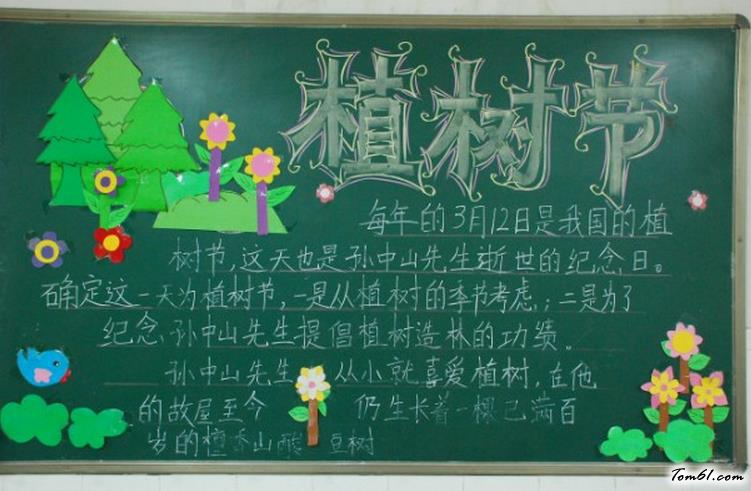 植树节
每年的3月12日是我国的植
树节,这天也是孙中山先生逝世的纪念日。
确定这一天为植树节,一是从植树的季节考虑;二是为了
纪念孙中山先生提倡植树造林的功绩。
孙中山先生从小就喜爱植树,在他
的故屋至今仍生长着一棵已满百
岁的檀香山酸豆树
Tom61.com